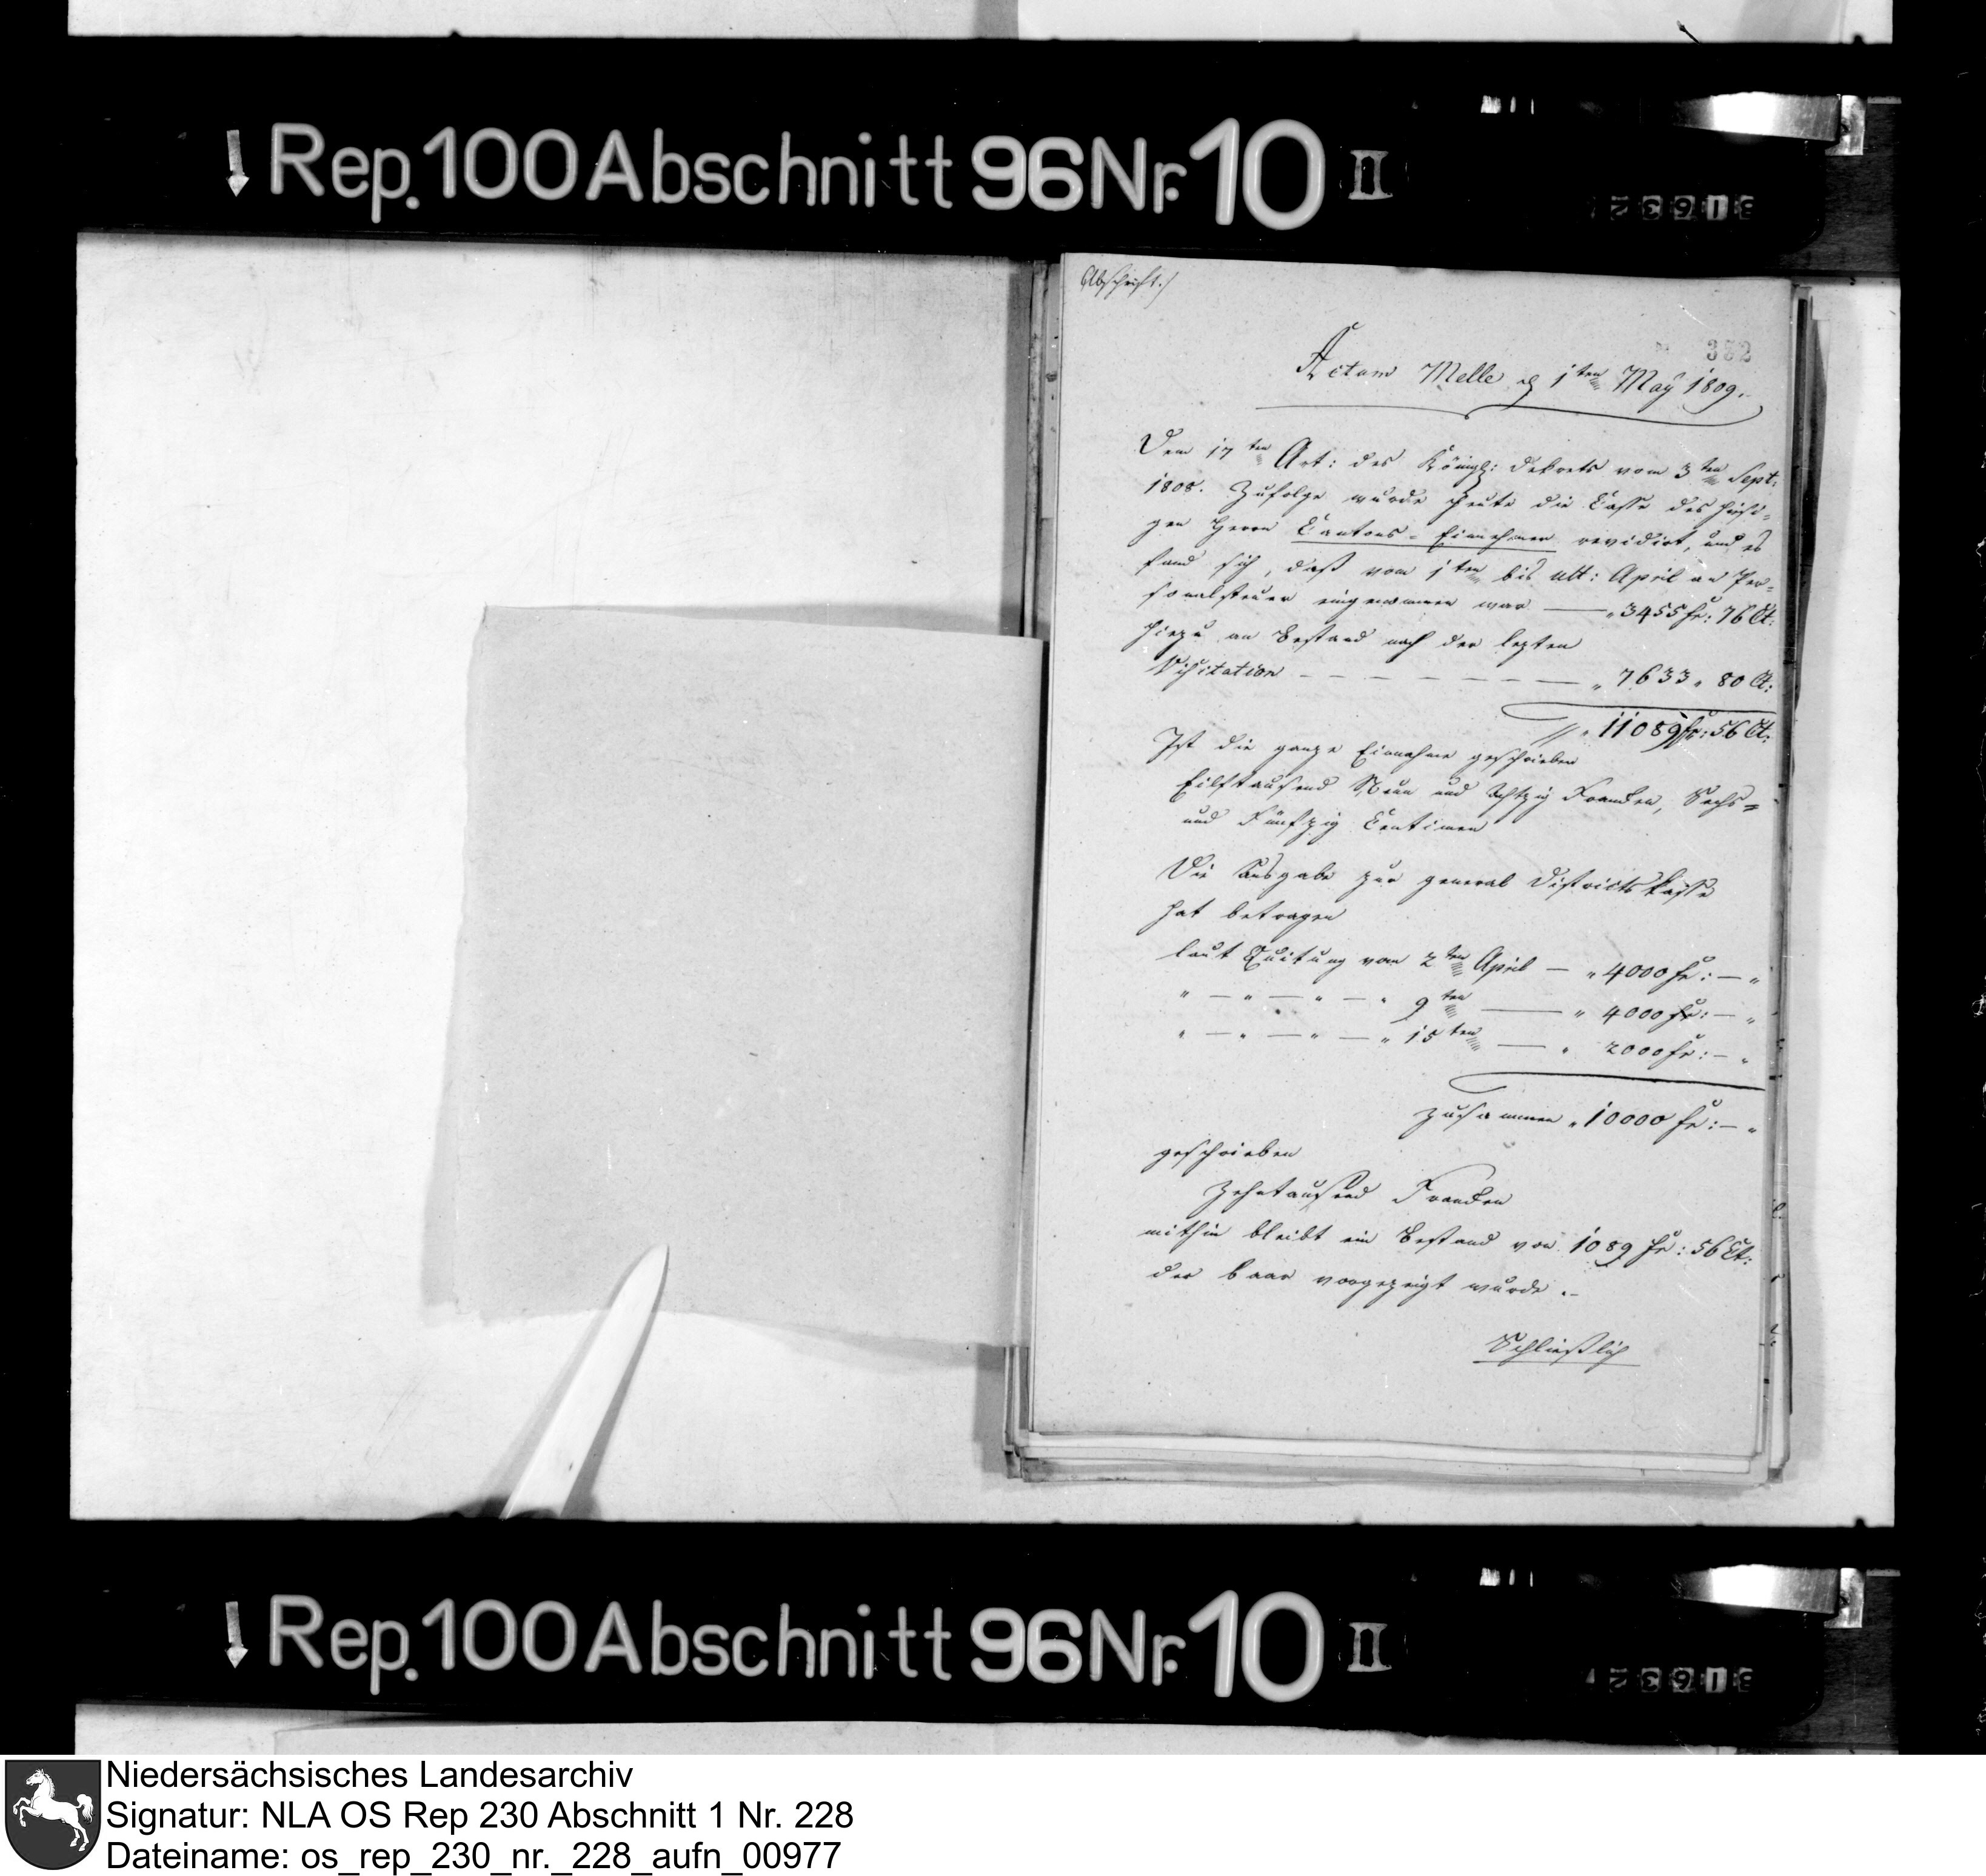 Rep. 100 Abschnitt 96 Nr. 10 II
31632
Abschrift.)
382
Actum Melle d 1ten May 1809.
Dem 17ten Art: des Königl: Dekrets vom 3ten Sept:
1808. Zufolge wurde heute die Casse des hiesi-
gen Herrn Cantons-Einnehmer revidirt, und es
fand sich, daß vom 1ten bis ult: April an Per-
sonalsteuer eingenommen war — „ 3455 fr: 76 Ct:
hiezu an Bestand nach der lezten
Visitation — — — — — — „ 7633 „ 80 Ct:
„ 11089 fr: 56 Ct:
Ist die ganze Einnahme geschrieben
Eilftausend Neun und Achtzig Francken, Sechs=
und Fünfzig Centimen
Die Ausgabe zur general Districts Casse
hat betragen
laut Quitung vom 2ten April — „ 4000 fr: — „
„ — „ — „ — „ 9ten — „ 4000 fr: — „
„ — „ — „ — „ 15ten — „ 2000 fr: — „
zusammen „ 10000 fr: — „
geschrieben
Zehntausend Francken
mithin bleibt ein Bestand von 1089 fr: 56 Ct:
der baar vorgezeigt wurde .-
Schließlich
Rep. 100 Abschnitt 96 Nr. 10 II
31632
Niedersächsisches Landesarchiv
Signatur: NLA OS Rep 230 Abschnitt 1 Nr. 228
Dateiname: os_rep_230_nr._228_aufn_00977